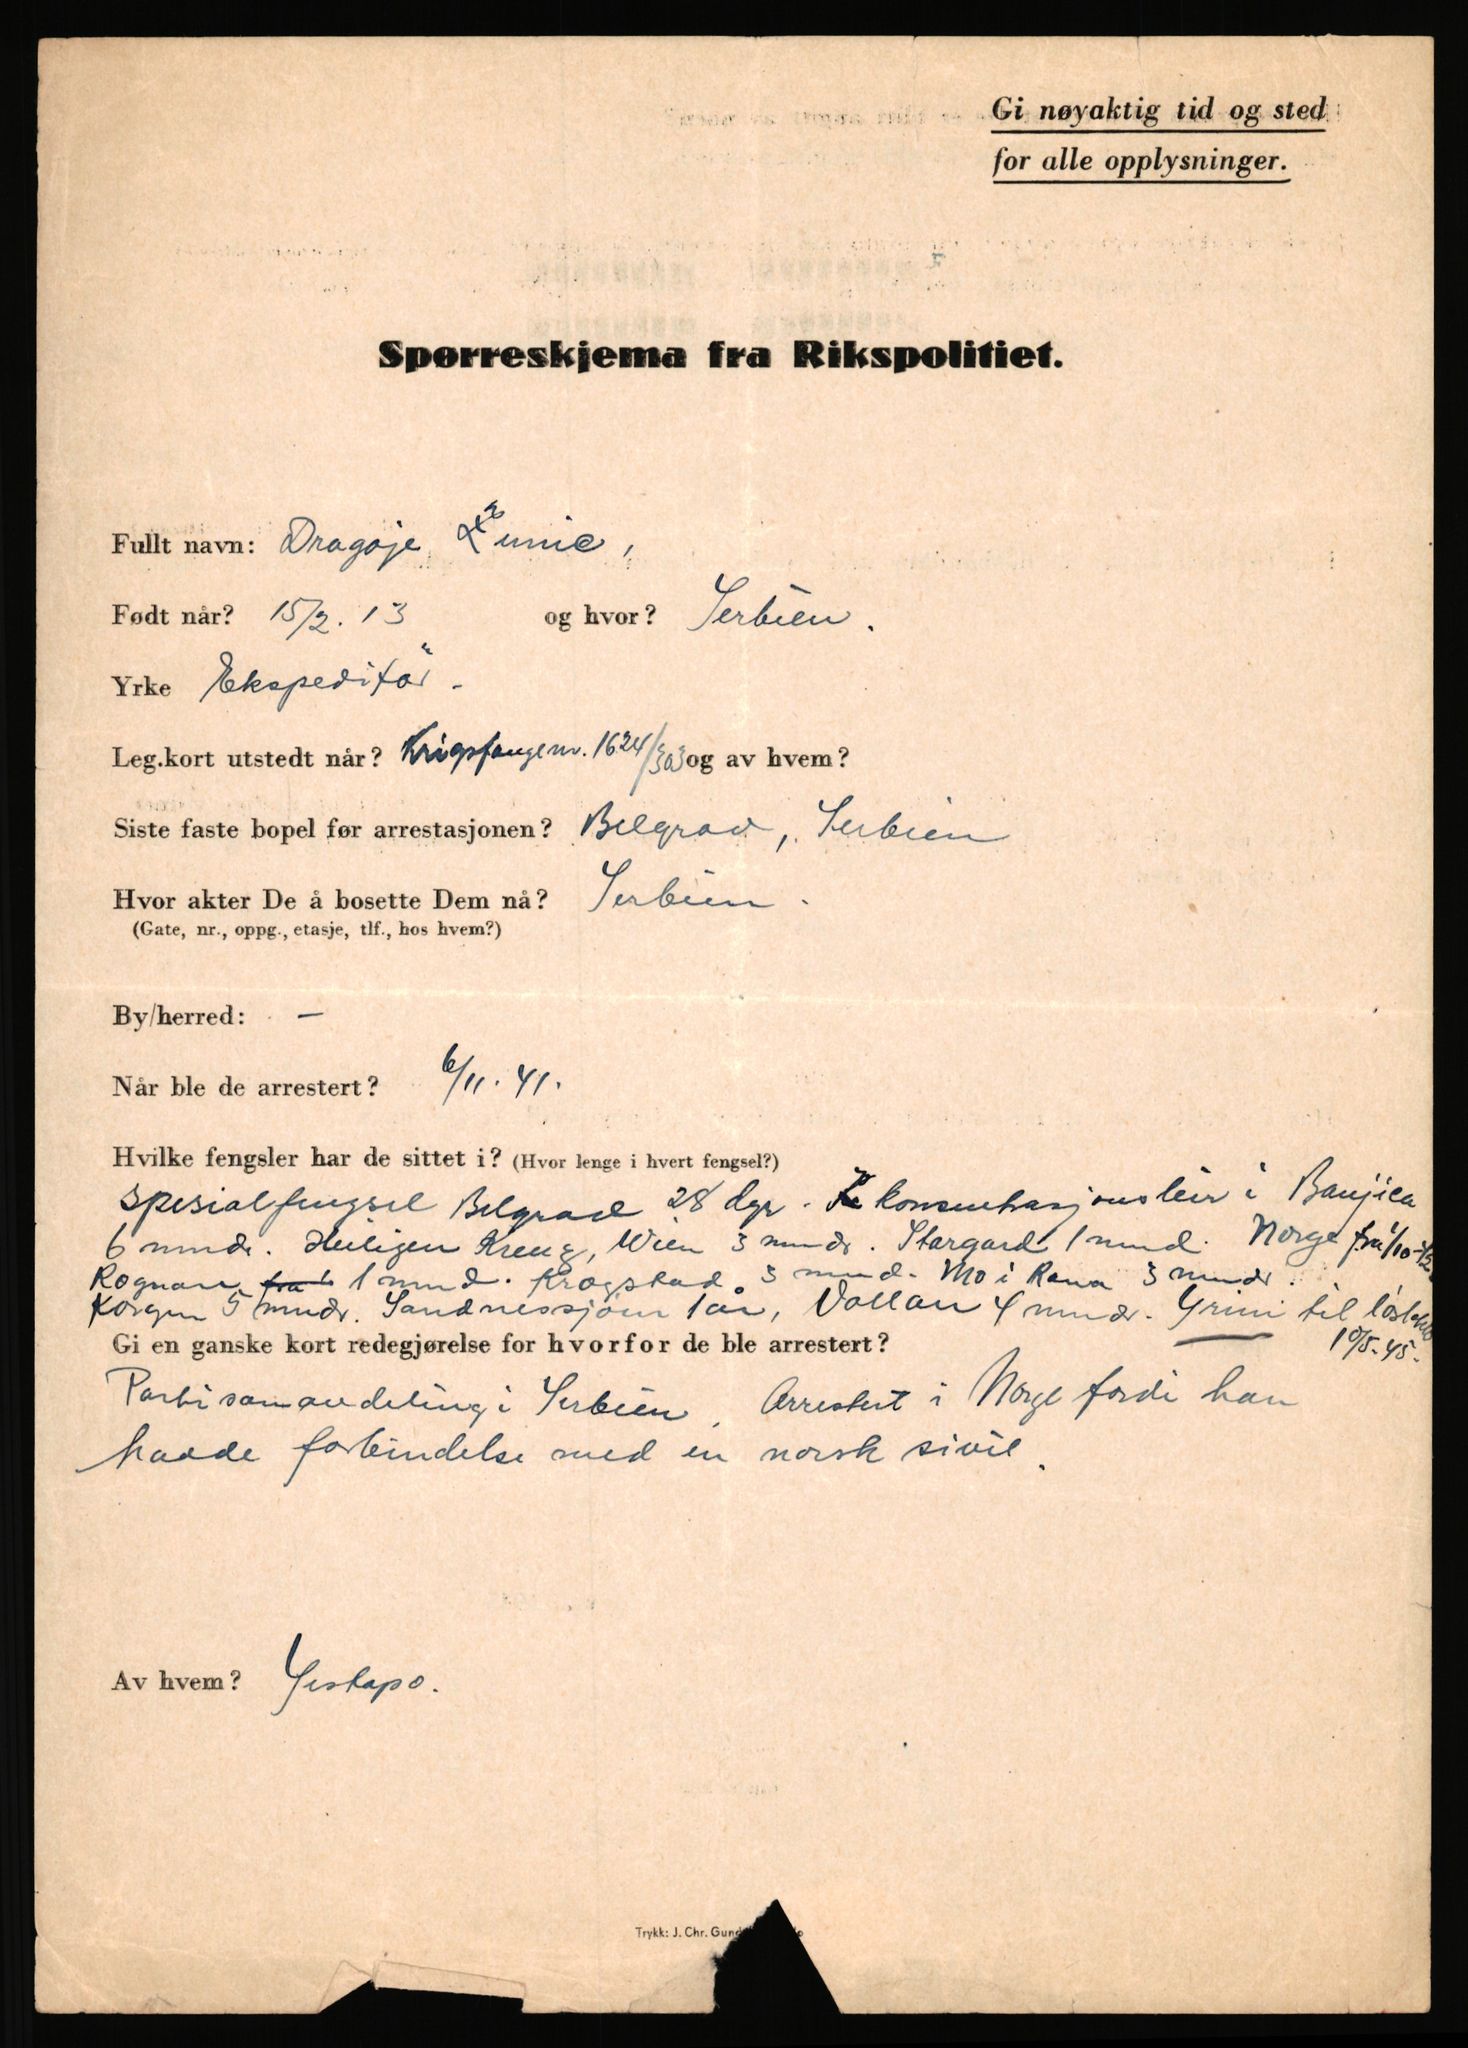 Gi nøyaktig tid og sted
for alle opplysninger.
Spørreskjema fra Rikspolitiet.
Fullt navn: Dragoje Zunic,
Født når? 15/2. 13 og hvor? Serbien.
Yrke Ekspeditör.
Leg.kort utstedt når? Krigsfange nr. 1624/303 og av hvem?
Siste faste bopel før arrestasjonen? Belgrad, Serbien
Hvor akter De å bosette Dem nå? Serbien.
(Gate, nr., oppg., etasje, tlf., hos hvem?)
By/herred: —
Når ble de arrestert? 6/11. 41.
Hvilke fengsler har de sittet i? (Hvor lenge i hvert fengsel?)
Spesialfengsel Belgrad 28 dgr. konsentrasjonsleir i Banjica
6 mndr. Heiligen Kreuz, Wien 3 mndr. Stargard 1 mnd. Norge fra 1/10-42
Rognan fra 1 mnd. Krogstad 3 mnd. Mo i Rana 3 mndr.
Korgen 5 mndr. Sandnessjøen 1 år, Vollan 4 mndr. Grini til løslatt
10/5-45.
Gi en ganske kort redegjørelse for hvorfor de ble arrestert?
Partisanavdeling i Serbien. Arrestert i Norge fordi han
hadde forbindelse med en norsk sivil.
Av hvem? Gestapo.
Trykk: J. Chr. Gund